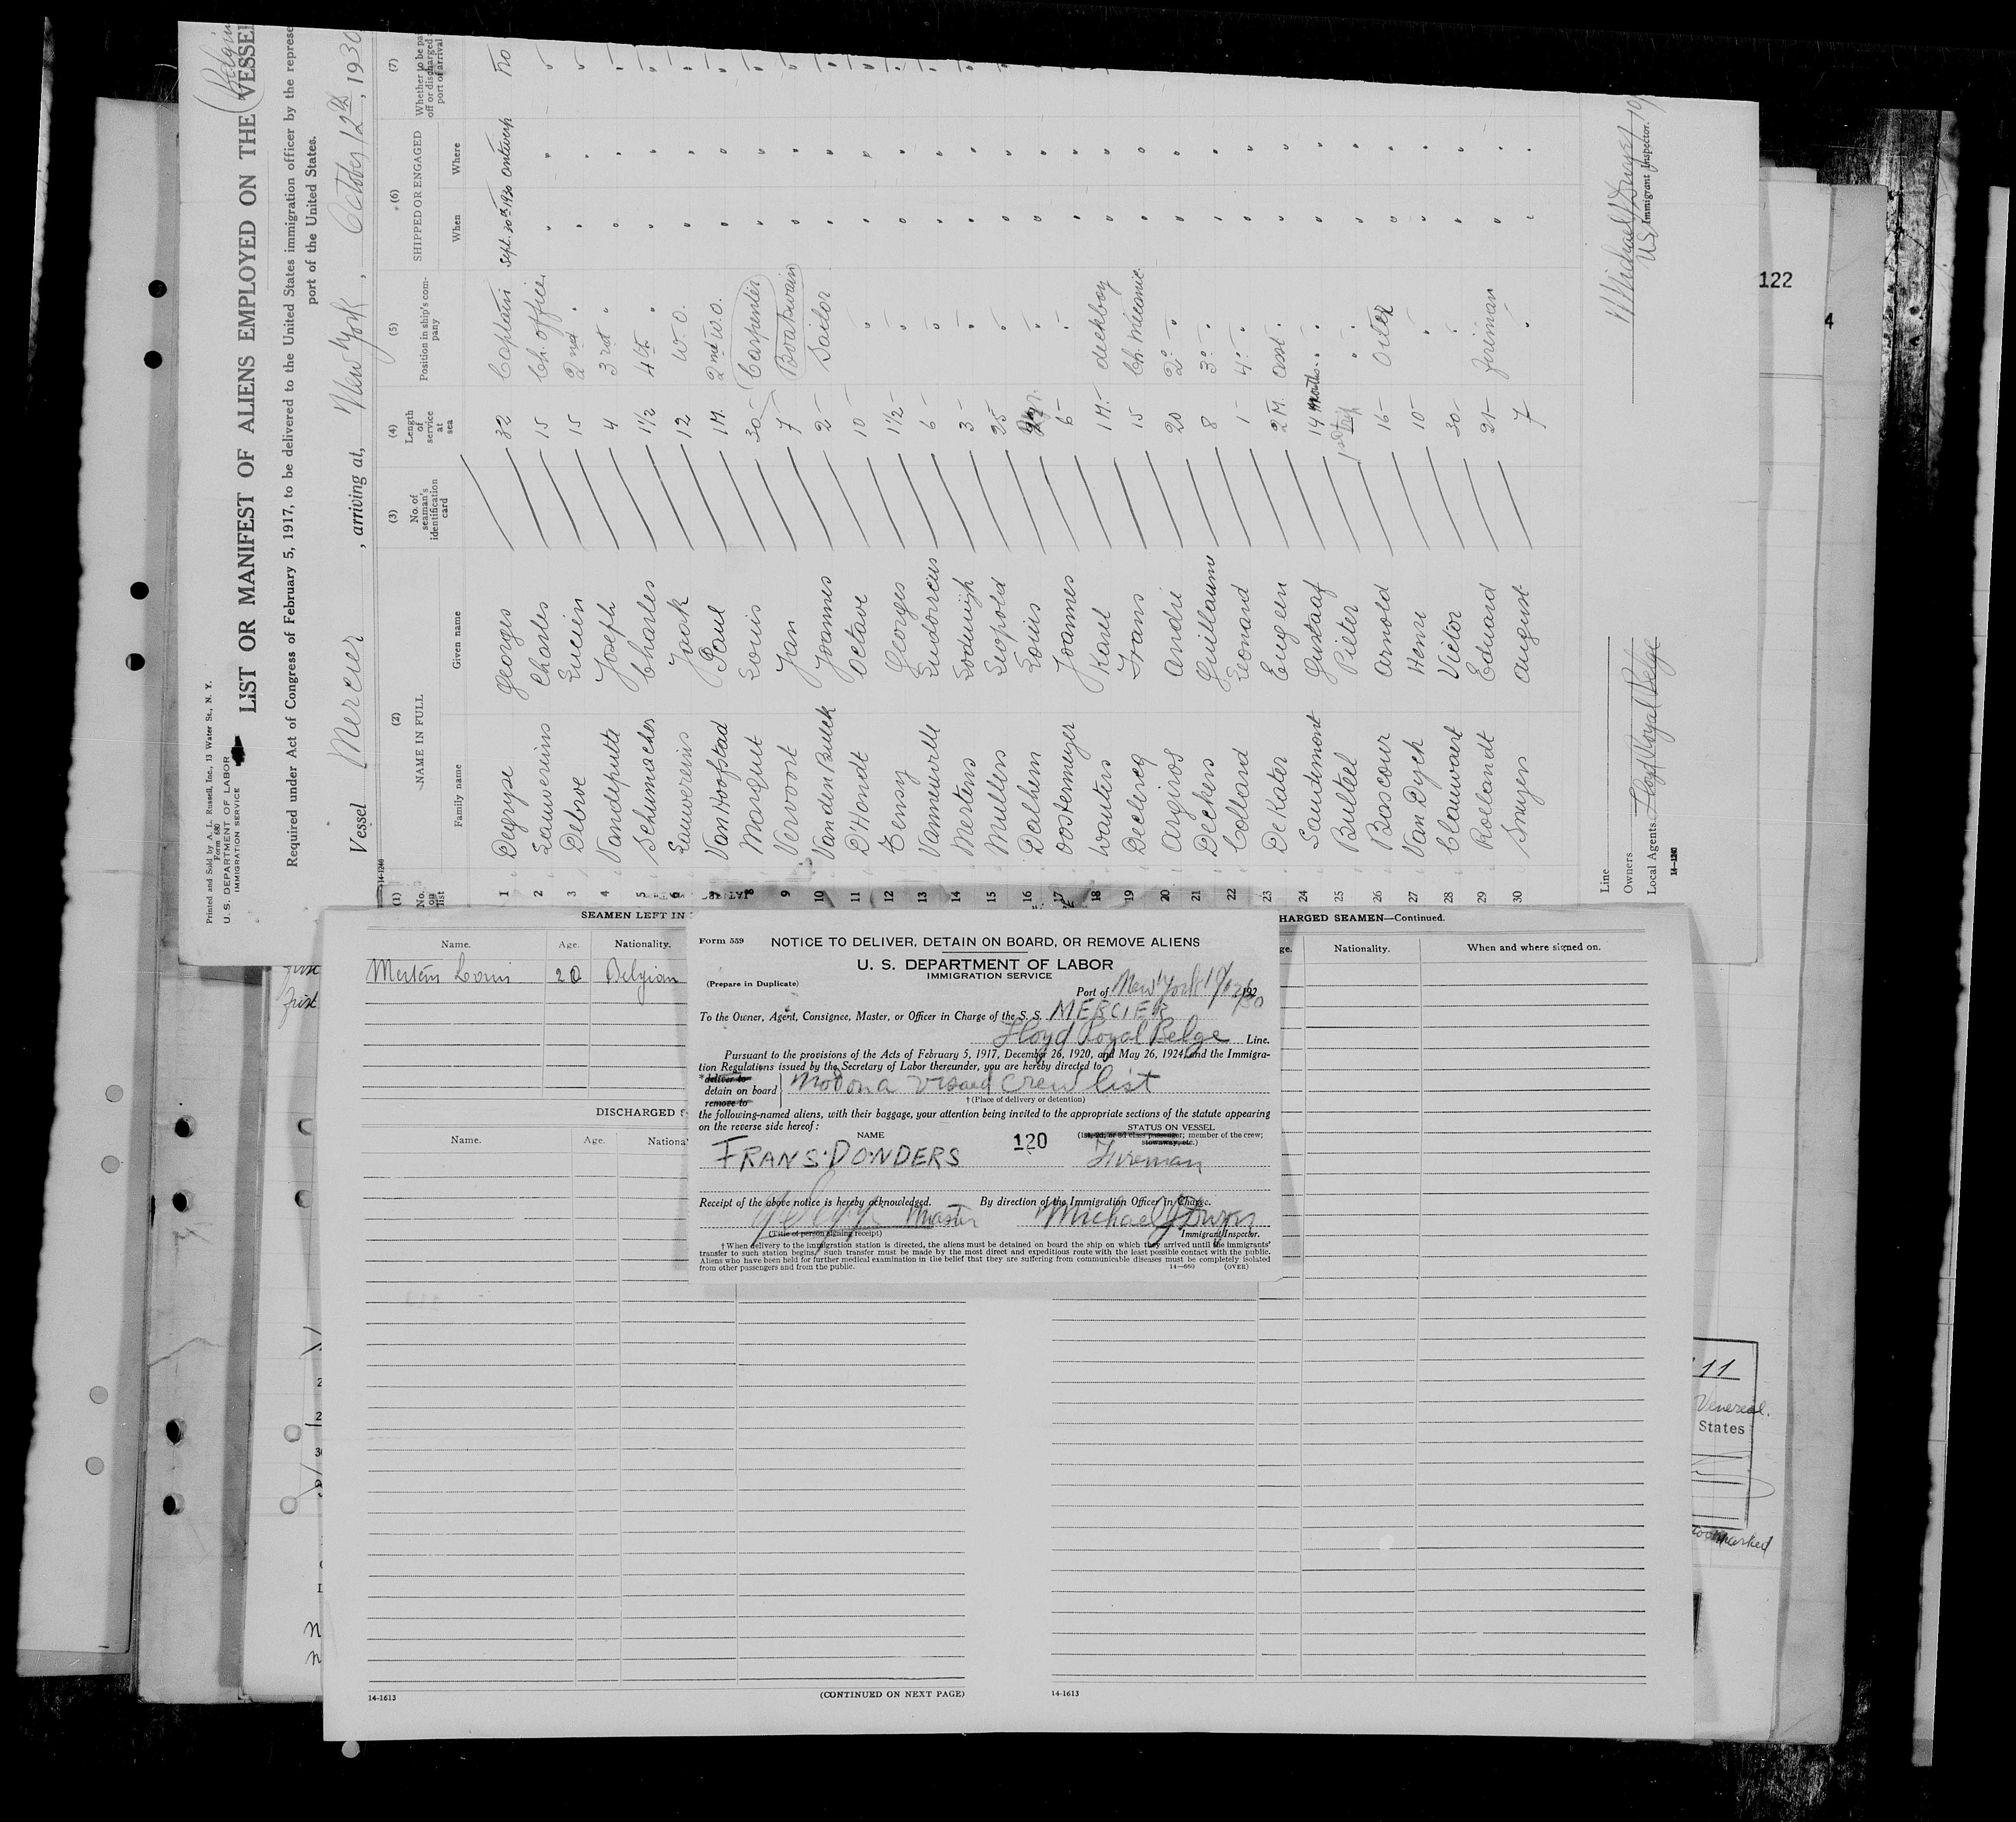 Printed and Sold by A. L. Russell, Inc., 13 Water St., N. Y.
Form 680
U. S. DEPARTMENT OF LABOR
IMMIGRATION SERVICE
LIST OR MANIFEST OF ALIENS EMPLOYED ON THE VESSEL
Required under Act of Congress of February 5, 1917, to be delivered to the United States immigration officer by the represe
port of the United States.
Vessel Mercier, arriving at, New York, October 12th, 1930
14-1240
(1) (2) (3) (4) (5) (6) (7)
No. on list NAME IN FULL No. of seaman's identification card Length of service at sea Position in ship's company SHIPPED OR ENGAGED Whether to be pa off or discharged port of arrival
Family name Given name When Where
1 Degryse Georges 32 Captain Sept. 30th 1930 Antwerp no
2 Lauwereins Charles 15 Ch. officer " " "
3 Debroe Lucien 15 2nd " " " "
4 Vandeputte Joseph 4 3rd " " " "
5 Schumacher Charles 1 1/2 4th " " " "
6 Lauwereins Jaak 12 W. O. " " "
7 Van Hoofstad Paul 2nd W. O. " " "
8 Louis 30 Carpenter " " "
9 Vervoort Jan 7 Boatswain " " "
10 Vanden Bulck Joannes 2 Sailor " " "
11 D'Hondt Octave 10 " " " "
12 Georges 1 1/2 " " " "
13 6 " " " "
14 Mertens Lodewijk 3 " " " "
15 Mullens Leopold 25 " " " "
16 Dalhem Louis " " " "
17 Oostermeyer Joannes 6 " " " "
18 Wauters Karel deckboy " "
19 Declircq Frans 15 Ch. mecanic " "
20 Argiros André 20 2° " " "
21 Deckers Guillaume 8 3° " " "
22 Collard Leonard 1 4° " " "
23 De Kater Eugeen 2 M. asst. " "
24 Saudemont Gustaaf 14 months " " "
25 Bulteel Pieter 1st trip " " "
26 Bascour Arnold 16 Oiler " "
27 Van Dyck Henri 10 " " "
28 Clauwaert Victor 30 " " "
29 Roelandt Eduard 21 fireman " "
30 Smeyers August 7 " " "
Line
Owners
Local Agents Lloyd Royal Belge
14-1240
Michael J Dwyer
US Immigrant Inspector.
122
4
SEAMEN LEFT IN
Name. Age. Nationality.
Mertens Louis 20 Belgian
DISCHARGED S
Name. Age. Nationa
HARGED SEAMEN—Continued.
ge. Nationality. When and where signed on.
Form 559
NOTICE TO DELIVER, DETAIN ON BOARD, OR REMOVE ALIENS
U. S. DEPARTMENT OF LABOR
IMMIGRATION SERVICE
(Prepare in Duplicate)
Port of New York 10/12/30 192
To the Owner, Agent, Consignee, Master, or Officer in Charge of the S. S. MERCIER
Lloyd Royal Belge Line.
Pursuant to the provisions of the Acts of February 5, 1917, December 26, 1920, and May 26, 1924, and the Immigra-
tion Regulations issued by the Secretary of Labor thereunder, you are hereby directed to
*deliver to
detain on board
remove to
Not on a visaed crew list
† (Place of delivery or detention)
the following-named aliens, with their baggage, your attention being invited to the appropriate sections of the statute appearing
on the reverse side hereof:
NAME STATUS ON VESSEL
(1st, 2d, or 3d class passenger; member of the crew;
stowaway, etc.)
FRANS DONDERS 120 Fireman
Receipt of the above notice is hereby acknowledged. By direction of the Immigration Officer in Charge.
Master Michael J Dwyer
(Title of person signing receipt) Immigrant Inspector.
† When delivery to the immigration station is directed, the aliens must be detained on board the ship on which they arrived until the immigrants'
transfer to such station begins. Such transfer must be made by the most direct and expeditious route with the least possible contact with the public.
Aliens who have been held for further medical examination in the belief that they are suffering from communicable diseases must be completely isolated
from other passengers and from the public. 14—660 (OVER)
11
Venereal.
States
14-1613 (CONTINUED ON NEXT PAGE) 14-1613